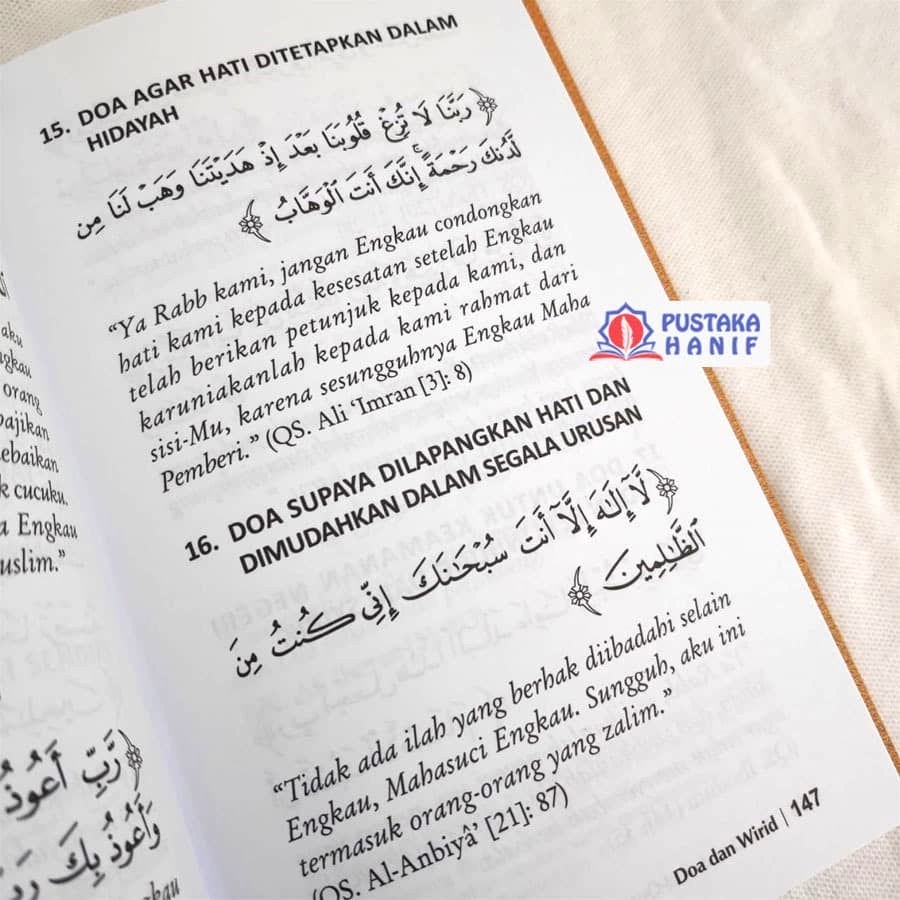 aku
ngkau
orang
bajikan
kebaikan
k cucuku.
a Engkau
uslim.”
رَبِّ أَعُوذُ
وَأَعُوذُ بِكَ رَبِّ
15. DOA AGAR HATI DITETAPKAN DALAM
HIDAYAH
﴿ رَبَّنَا لَا تُزِغْ قُلُوبَنَا بَعْدَ إِذْ هَدَيْتَنَا وَهَبْ لَنَا مِن
لَّدُنكَ رَحْمَةً ۚ إِنَّكَ أَنتَ الْوَهَّابُ ﴾
“Ya Rabb kami, jangan Engkau condongkan
hati kami kepada kesesatan setelah Engkau
telah berikan petunjuk kepada kami, dan
karuniakanlah kepada kami rahmat dari
sisi-Mu, karena sesungguhnya Engkau Maha
Pemberi.” (QS. Ali ‘Imran [3]: 8)
PUSTAKA
HANIF
16. DOA SUPAYA DILAPANGKAN HATI DAN
DIMUDAHKAN DALAM SEGALA URUSAN
﴿ لَآ إِلَٰهَ إِلَّآ أَنتَ سُبْحَٰنَكَ إِنِّي كُنتُ مِنَ
ٱلظَّٰلِمِينَ ﴾
“Tidak ada ilah yang berhak diibadahi selain
Engkau, Mahasuci Engkau. Sungguh, aku ini
termasuk orang-orang yang zalim.”
(QS. Al-Anbiyâ’ [21]: 87)
Doa dan Wirid | 147